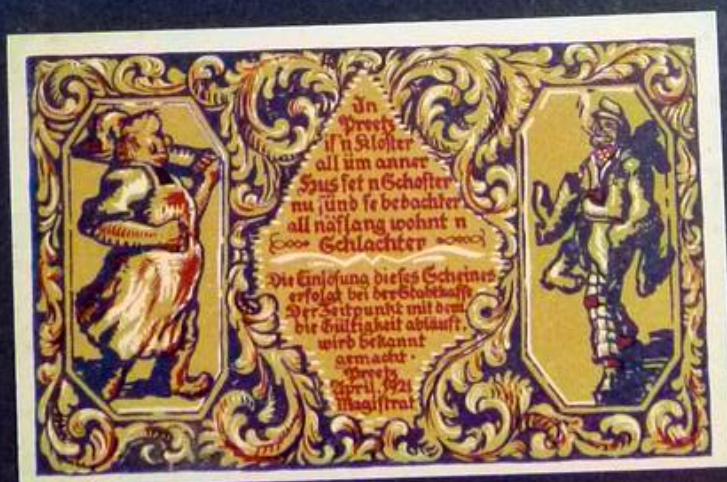 In
Preetz
is'n Kloster
all üm anner
Hus set n Schoster
nu sünd se bedachter
all näslang wohnt n
Schlachter
Die Einlösung dieses Scheines
erfolgt bei der Stadtkasse
Der Zeitpunkt mit dem
die Gültigkeit abläuft,
wird bekannt
gemacht.
Preetz
April 1921
Magistrat